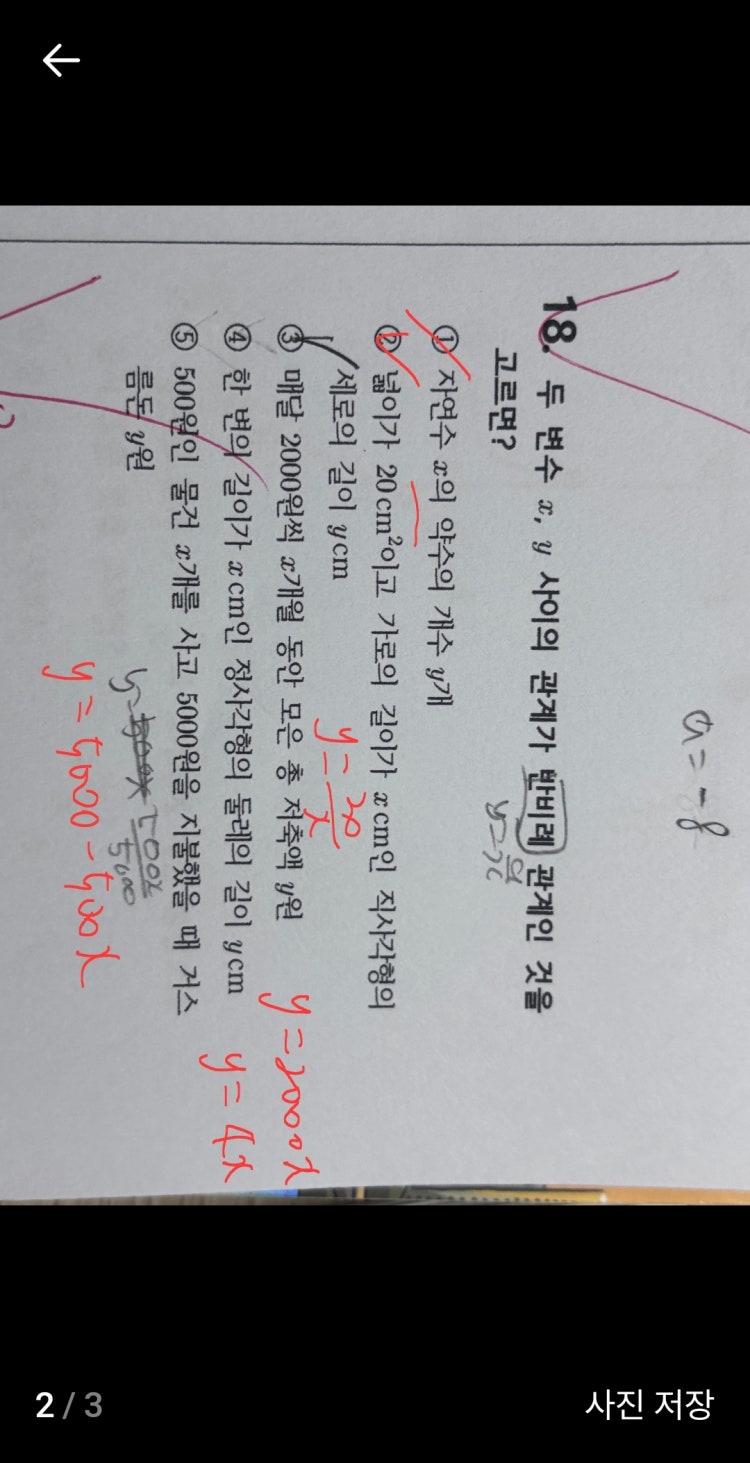 a = -8
18. 두 변수 x, y 사이의 관계가 반비례 관계인 것을
고르면?
① 자연수 x의 약수의 개수 y개
② 넓이가 20cm²이고 가로의 길이가 x cm인 직사각형의
세로의 길이 y cm
y = 20/x
③ 매달 2000원씩 x개월 동안 모은 총 저축액 y원
y = 2000x
④ 한 변의 길이가 x cm인 정사각형의 둘레의 길이 y cm
y = 4x
⑤ 500원인 물건 x개를 사고 5000원을 지불했을 때 거스
름돈 y원
500x/5000
y = 5000 - 500x
2 / 3
사진 저장